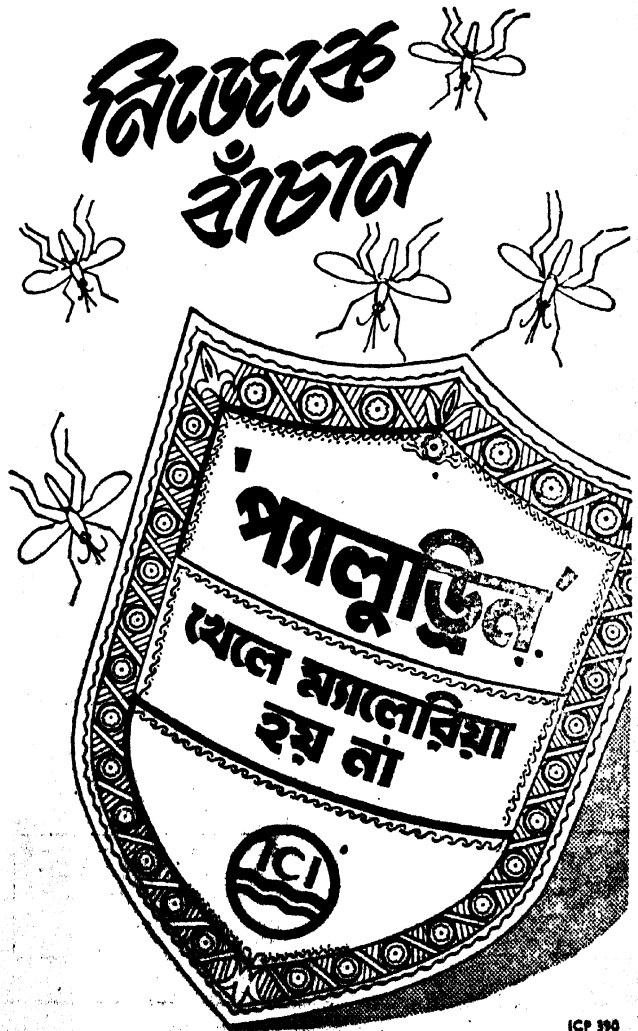 নিজেকে
বাঁচান
'প্যালুড্রিন'
খেলে ম্যালেরিয়া
হয় না
ICI
ICP 390